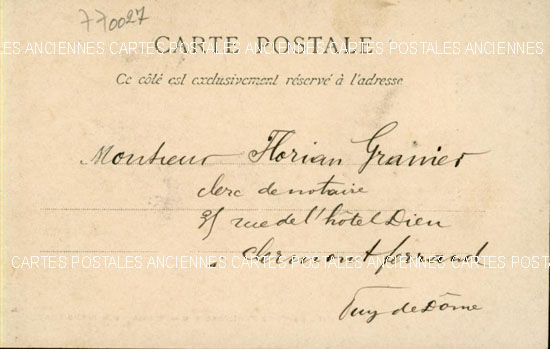 770027
CARTE POSTALE
CARTES POSTALES ANCIENNES CARTES POSTALES ANCIENNES CARTES POSTALES ANCIENNES
Ce côté est exclusivement réservé à l'adresse
Monsieur Florian Granier
clerc de notaire
rue de l'hôtel Dieu
Clermont ferrand
CARTES POSTALES ANCIENNES CARTES POSTALES ANCIENNES CARTES POSTALES ANCIENNES
Puy de Dôme